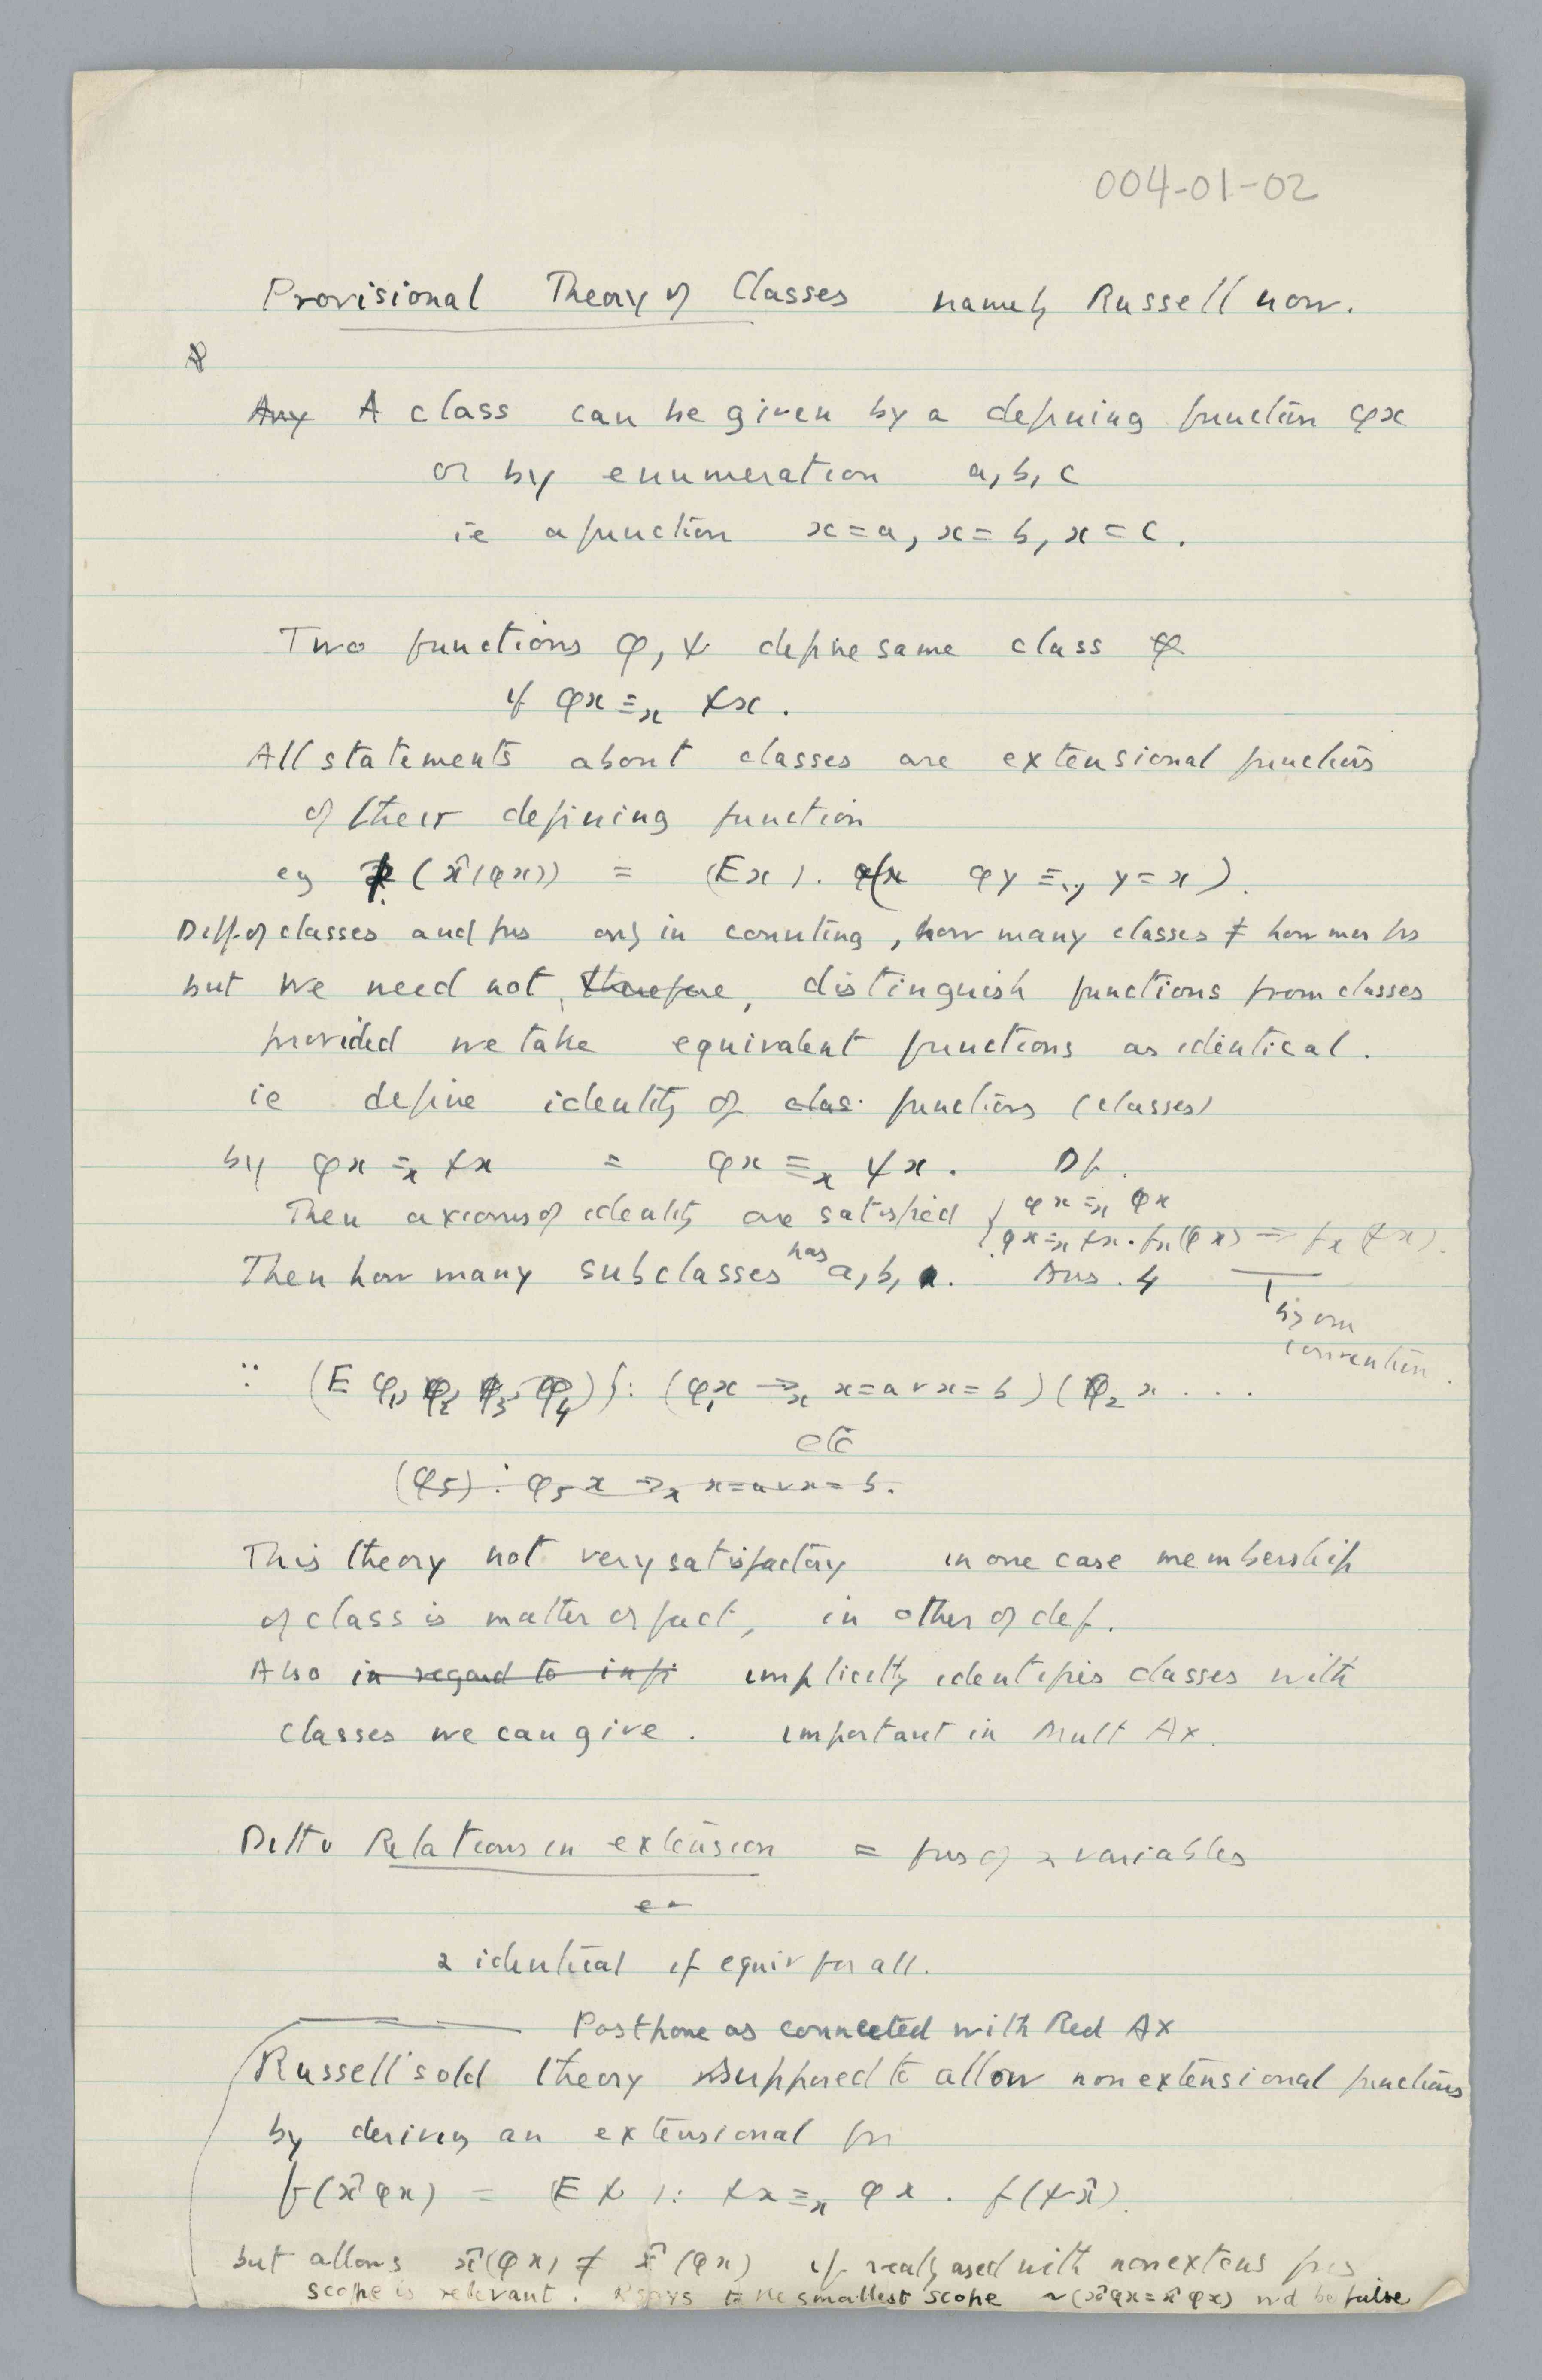 004-01-02
Provisional Theory of Classes namely Russell now.
Any A class can be given by a defining function φx
or by enumeration a, b, c
ie a function x=a, x=b, x=c.
Two functions φ, ψ define same class φ
if φx ≡x ψx.
All statements about classes are extensional functions
of their defining function
eg (x̂(φx)) = (Ex). φy ≡y y=x).
Diff. of classes and fns only in counting, how many classes ≠ how many fns
but we need not, therefore, distinguish functions from classes
provided we take equivalent functions as identical.
ie define identity of clas. functions (classes)
by φx =x ψx = φx ≡x ψx. Df.
Then axioms of identity are satisfied { φx =x φx
φx =x ψx . fx(φx) → fx(ψx).
Then how many subclasses has a, b, . Ans. 4
by our
convention.
∵ (E φ1, φ2, φ3, φ4) : (φ1x →x x=a v x=b) (φ2x . . .
etc
(φ5) : φ5x →x x=a v x=b.
This theory not very satisfactory in one case membership
of class is matter of fact, in other of def.
Also in regard to infi implicitly identifies classes with
classes we can give. important in Mult Ax.
Ditto Relations in extension = fns of 2 variables
2 identical if equiv for all.
Postpone as connected with Red Ax
Russell's old theory supposed to allow nonextensional functions
by deriving an extensional fn
f(x̂φx) = (Eψ): ψx ≡x φx . f(ψx̂).
but allows x̂(φx) ≠ x̂(φx) if really used with nonextens fns
scope is relevant. smallest scope ~(x̂φx = x̂φx) wd be false